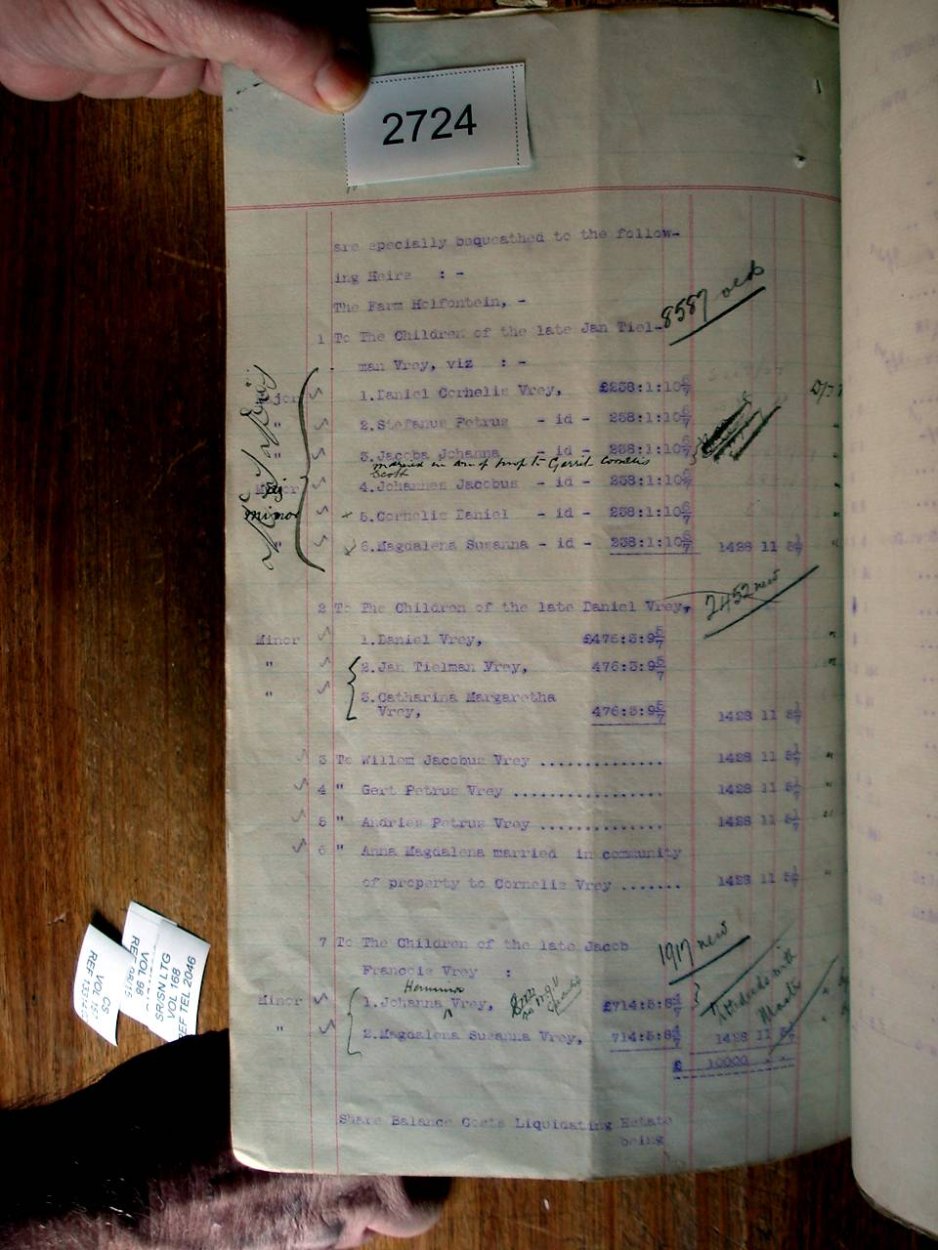 2724
are specially bequeathed to the follow-
ing Heirs : -
The Farm Holfontein, -
8587 old
1 To The Children of the late Jan Tiel-
man Vrey, viz : -
1.Daniel Cornelis Vrey, £238:1:10 6/7
" 2.Stefanus Petrus - id - 238:1:10 6/7
" 3.Jacoba Johanna 238:1:10 6/7
married in com of prop to Gerrit Cornelis
4.Johannes Jacobus - id - 238:1:10 6/7
Minor 5.Cornelis Daniel - id - 238:1:10 6/7
" 6.Magdalena Susanna - id - 238:1:10 6/7 1428 11 5 1/7
2452 new
2 To The Children of the late Daniel Vrey,
Minor 1.Daniel Vrey, £476:3:9 5/7
" 2.Jan Tielman Vrey, 476:3:9 5/7
" 3.Catharina Margaretha
Vrey, 476:3:9 5/7 1428 11 5 1/7
3 To Willem Jacobus Vrey .............. 1428 11 5 1/7 "
4 " Gert Petrus Vrey ................. 1428 11 5 1/7 "
5 " Andries Petrus Vrey .............. 1428 11 5 1/7 "
6 " Anna Magdalena married in community
of property to Cornelis Vrey ....... 1428 11 5 1/7 "
1917 new
7 To The Children of the late Jacob
Francois Vrey :
Hermina
Minor 1.Johanna Vrey, £714:5:8 4/7
" 2.Magdalena Susanna Vrey, 714:5:8 4/7 1428 11 5 1/7
£ 10000 . .
Share Balance Costs Liquidating Estate
being
CS
VOL 98
SR/SN LTG
VOL 168
REF TEL 2046